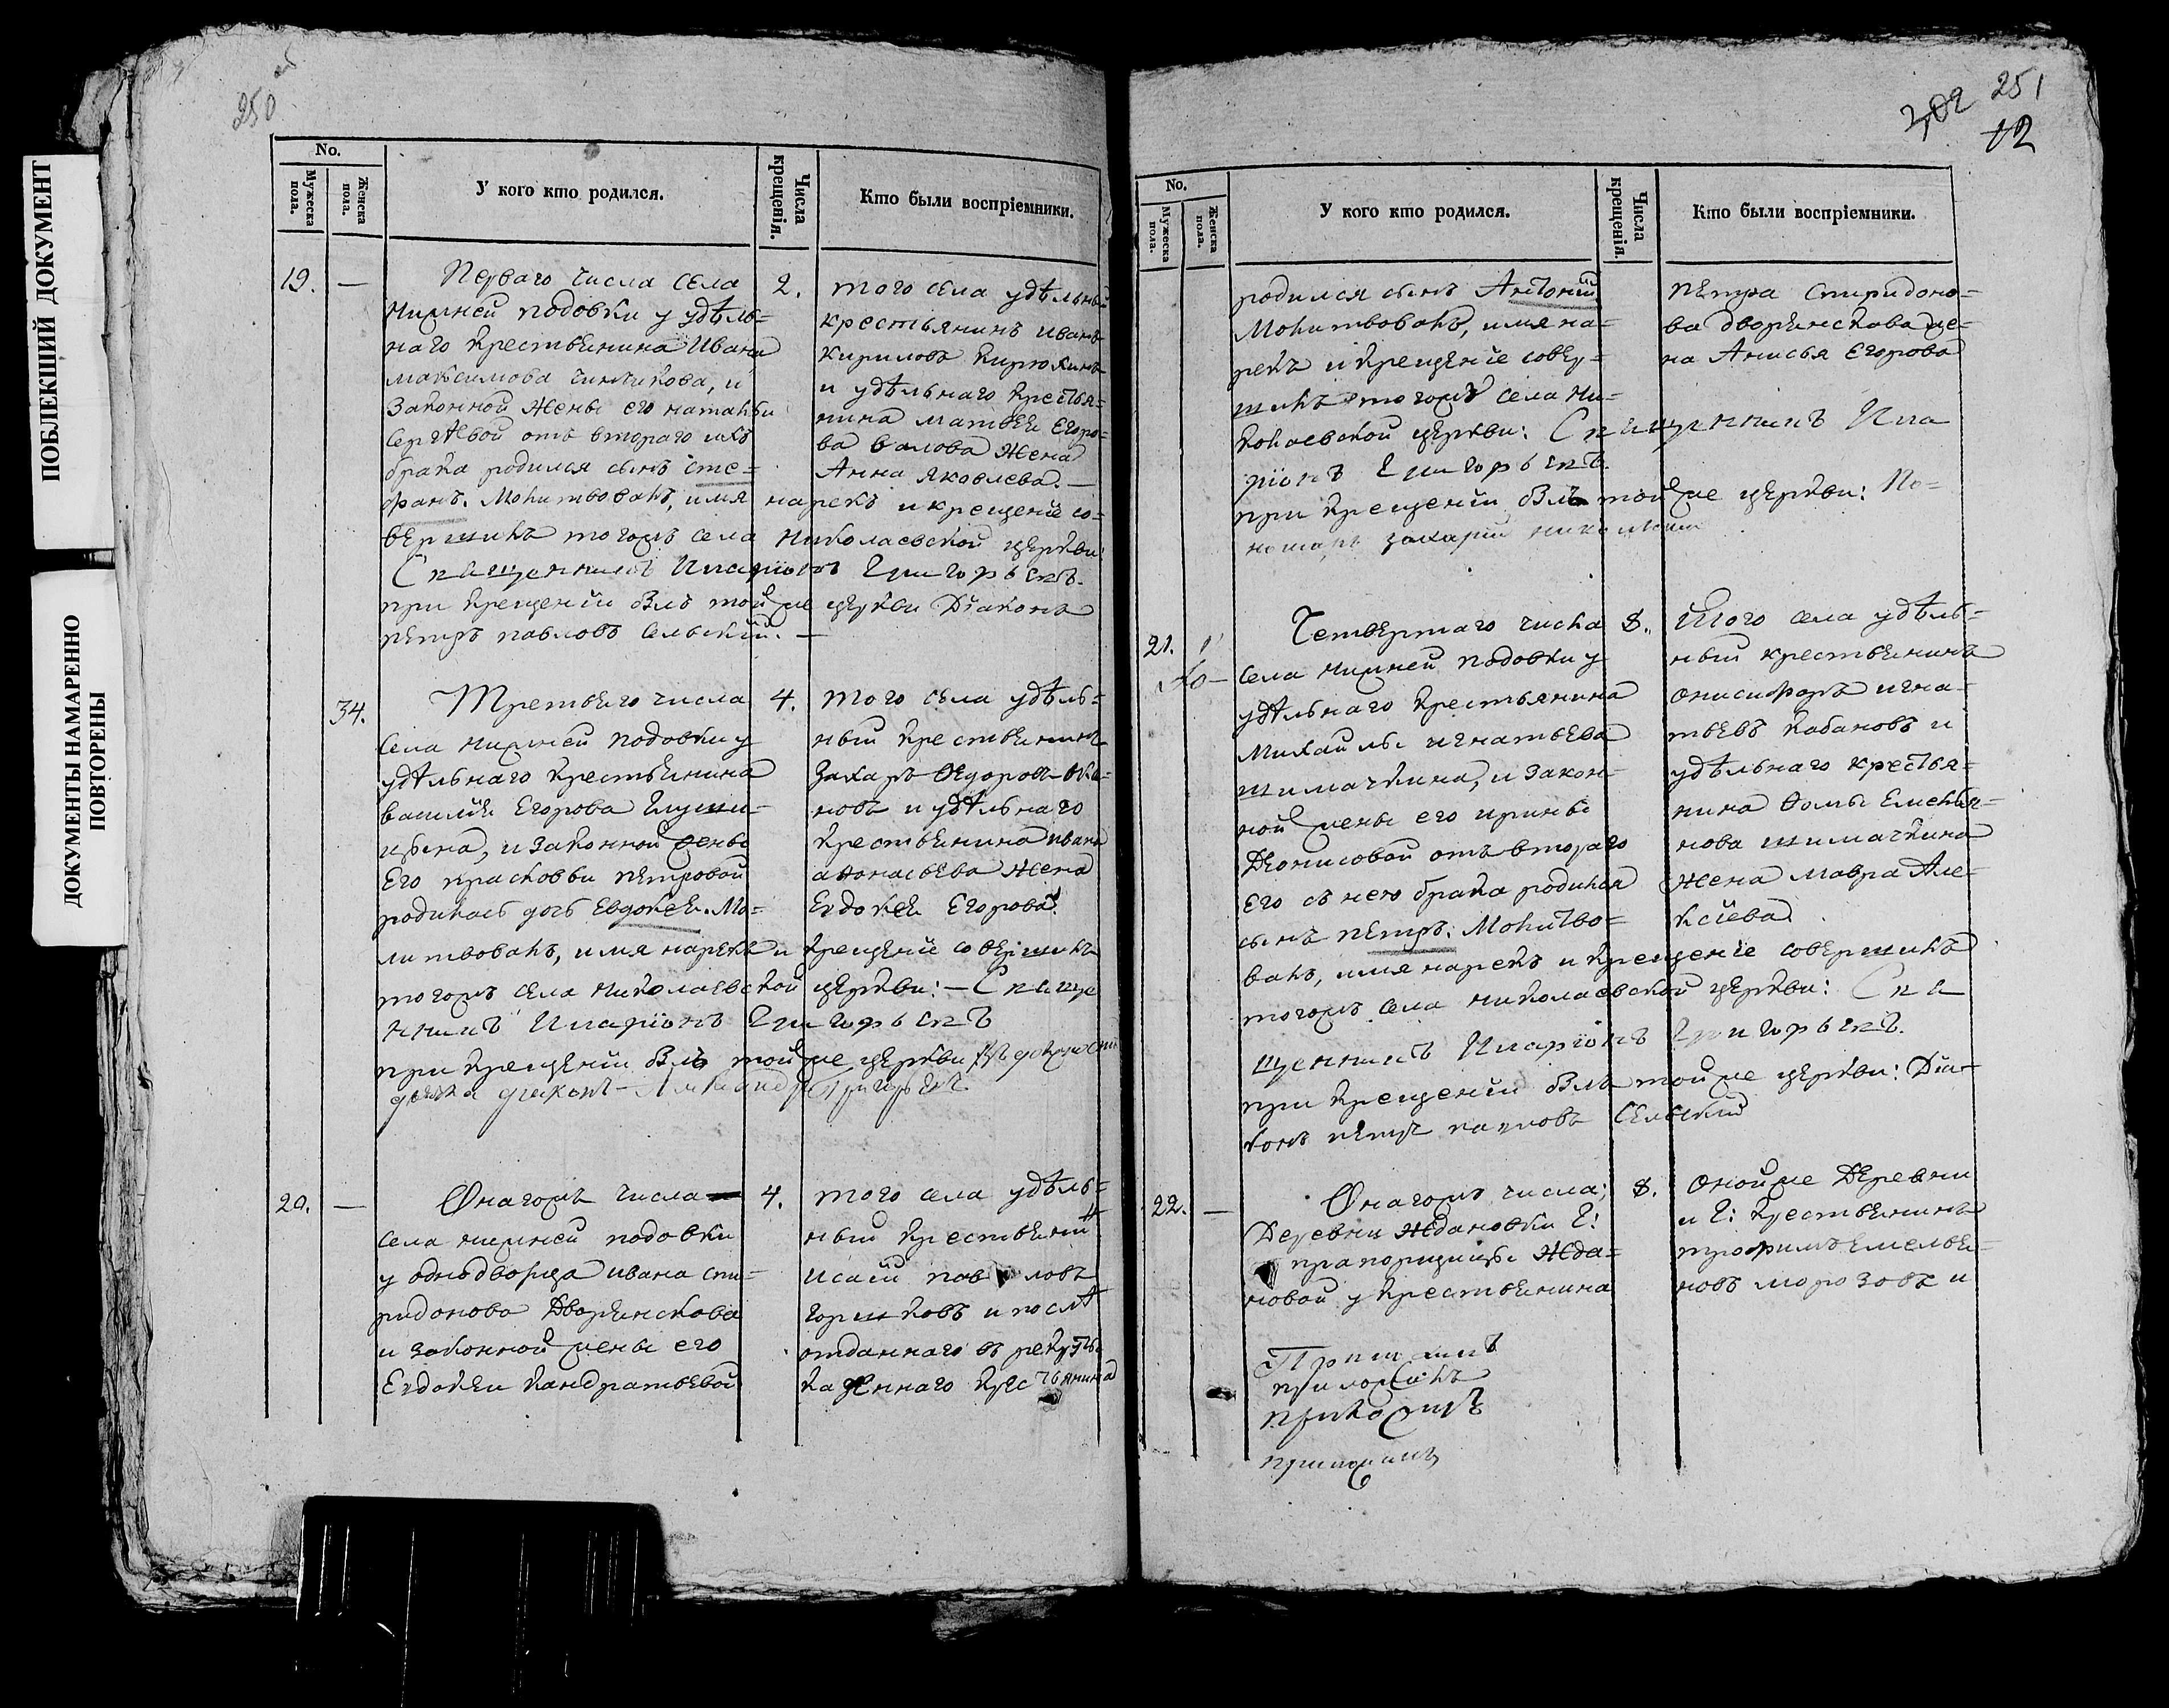 ПОБЛЕКШИЙ ДОКУМЕНТ
ДОКУМЕНТЫ НАМАРЕННО
ПОВТОРЕНЫ
250
No.
Мужеска пола.
Женска пола.
У кого кто родился.
Числа крещенія.
Кто были воспріемники.
19. —
Перваго числа села
нижней подовки у удѣль=
наго крестьянина Ивана
максимова, и
Законной жены его натальи
Сергѣевой отъ втораго ихъ
брака родился сынъ сте=
фанъ. Молитвовалъ, имя нарекъ и крещеніе со=
вершилъ тогожъ села Николаевской церкви:
Священникъ Иларіонъ Григорьевъ.
при крещеніи былъ тойже церкви Діаконъ
петръ павловъ сельскій. —
2.
того села удѣльный
крестьянинъ иванъ
кириловъ кирюхинъ
и удѣльнаго крестья=
нина матвея Егоро=
ва валова жена
Анна яковлева. —
34.
Третьяго числа
села нижней подовки у
удѣльнаго крестьянина
василія Егорова
и законной жены
Его прасковьи петровой
родилась дочь Евдокея. Мо=
литвовалъ, имя нарекъ и крещеніе совершилъ
тогожъ села Николаевской церкви: — Свяще
нникъ Иларіонъ Григорьевъ
при крещеніи былъ тойже церкви
діаконъ Александръ Григорьевъ.
4.
того села удѣль=
ный крестьянинъ
Захаръ Ѳедоровъ
новъ и удѣльнаго
крестьянина ивана
аѳонасьева жена
Евдокея Егорова.
20. —
Онагожъ числа
села нижней подовки
у однодворца ивана спи=
ридонова Дворянскова
и законной жены его
Евдокеи кандратьевой
4.
того села удѣль=
ный крестьянинъ
Исаій павловъ
горшковъ и послѣ
отданнаго въ рекруты
казеннаго крестьянина
251
202
12
No.
Мужеска пола.
Женска пола.
У кого кто родился.
Числа крещенія.
Кто были воспріемники.
родился сынъ Антоній
Молитвовалъ, имя на=
рекъ и крещеніе совер=
шилъ тогожъ села Ни=
колаевской церкви: Священникъ Ила
ріонъ Григорьевъ.
при крещеніи былъ тойже церкви: По=
номарь захарій
петра спиридоно=
ва дворянскова же=
на Анисья Егорова
21.
Четвертаго числа
села нижней подовки у
удѣльнаго крестьянина
Михаилы игнатьева
шимачкина, и закон=
ной жены его ирины
Деонисовой отъ втораго
Его съ нею брака родился
сынъ петръ. Молитво=
валъ, имя нарекъ и крещеніе совершилъ
тогожъ села николаевской церкви: Свя
щенникъ Иларіонъ Григорьевъ.
при крещеніи былъ тойже церкви: Діа=
конъ петръ павловъ Сельскій
8.
того села удѣль=
ный крестьянинъ
онисифоръ игна=
тьевъ кабановъ и
удѣльнаго крестья=
нина Ѳомы Емелья=
нова шимачкина
жена Мавра Але=
ксіева
22. —
Онагожъ числа;
Деревни Ждановки Г:
прапорщицы Жда=
новой у крестьянина
8.
оной же Деревни
и Г: крестьянинъ
трофимъ емелья=
новъ морозовъ и